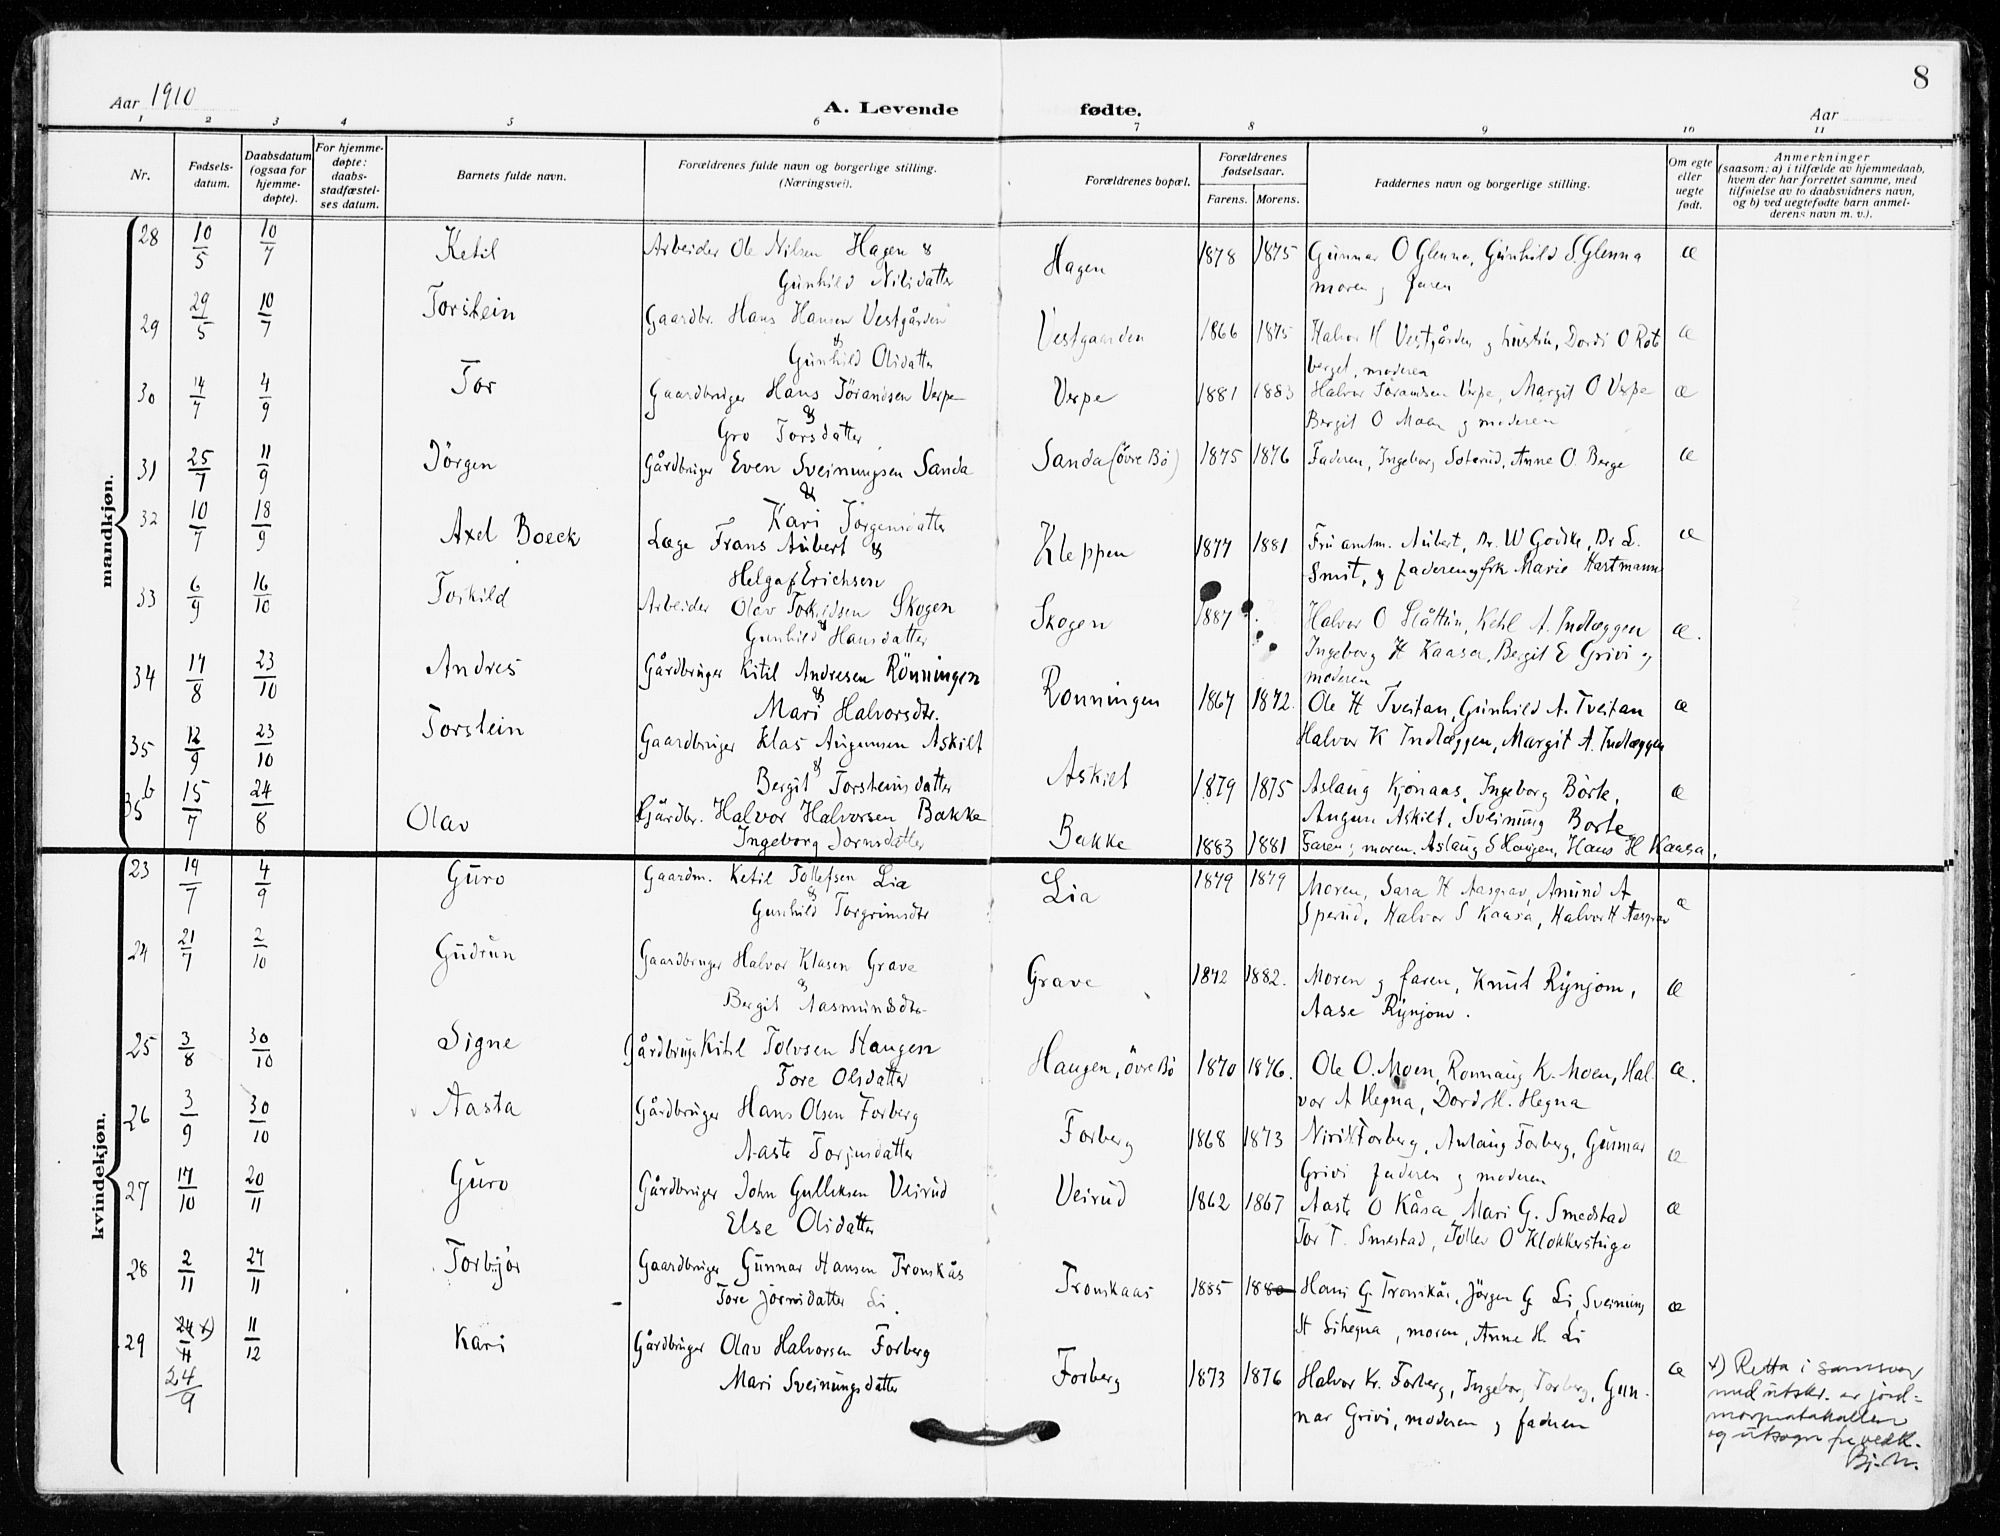 8
Aar 1910
A. Levende fødte.
Aar
1 2 3 4 5 6 7 8 9 10 11
Nr.
Fødsels-
datum.
Daabsdatum
(ogsaa for
hjemme-
døpte).
For hjemme-
døpte:
daabs-
stadfæstel-
ses datum.
Barnets fulde navn.
Forældrenes fulde navn og borgerlige stilling.
(Næringsvei).
Forældrenes bopæl.
Forældrenes
fødselsaar.
Farens. Morens.
Faddernes navn og borgerlige stilling.
Om egte
eller
uegte
født.
Anmerkninger
(saasom: a) i tilfælde av hjemmedaab,
hvem der har forrettet samme, med
tilføielse av to daabsvidners navn,
og b) ved uegtefødte barn anmel-
derens navn m. v.).
mandkjøn.
28 10/5 10/7 Ketil Arbeider Ole Nilsen Hagen & Hagen 1878 1875 Gunnar O Glenna, Gunhild S. Glenna æ
Gunhild Nilsdatter moren og faren
29 29/5 10/7 Torstein Gaardbr. Hans Hansen Vestgården Vestgaarden 1866 1875 Halvor H Vestgården og hustru, Dordi O Rot æ
& Gunhild Olsdatter berget, moderen
30 14/7 4/9 Tor Gaardbruger Hans Jörandsen Verpe Verpe 1881 1883 Halvor Jörandsen Verpe, Margit O Verpe æ
& Gro Torsdatter Bergit O Moen og moderen
31 25/7 11/9 Jörgen Gårdbruger Even Sveinungsen Sanda Sanda (övre Bö) 1875 1876 Faderen, Ingeborg Soterud, Anne O. Berge æ
& Kari Jörgensdatter
32 10/7 18/9 Axel Boeck Læge Frans Aubert & Kleppen 1877 1881 Fru amtm. Aubert, Dr. W Godtke, Dr L. æ
Helga Erichsen Smit, og faderen og frk Marie Hartmann
33 6/9 16/10 Torkild Arbeider Olav Torkildsen Skogen Skogen 1887 Halvor O Slåttin, Ketil A. Indlæggen æ.
& Gunhild Hansdatter Ingeborg H Kaasa, Bergit E Grivi og
moderen
34 17/8 23/10 Andres Gårdbruger Kitil Andresen Rönningen Ronningen 1867 1872. Ole H Tveitan, Gunhild A. Tveitan æ
& Mari Halvorsdtr. Halvor K Indlæggen, Margit A. Indlæggen
35 12/9 23/10 Torstein Gaardbruger Klas Augunsen Askilt Askilt 1879 1875 Aslaug Kjonaas, Ingeborg Börte, æ
& Bergit Torsteinsdatter Augun Askilt, Sveinung Borte
35b 15/7 24/8 Olav Gårdbr. Halvor Halvorsen Bakke Bakke 1883 1881 Faren og moren. Aslaug S Haugen, Hans H Kaasa,
Ingeborg Jornsdatter
kvindekjøn.
23 19/7 4/9 Guro Gaardm. Ketil Tollefsen Lia Lia 1879 1879 Moren, Sara H Aasgrav, Amund A æ
& Gunhild Torgrimsdtr Sperud, Halvor S Kaasa, Halvor H Aasgrav
24 21/7 2/10 Gudrun Gaardbruger Halvor Klasen Grave Grave 1872 1882. Moren og faren, Knut Rynjom, æ
& Bergit Aasmundsdtr Aase Rynjom.
25 3/8 30/10 Signe Gårdbruger Kitil Tolvsen Haugen Haugen, övre Bö 1870 1876. Ole O. Moen, Ronnaug K. Moen, Hal- æ.
Tore Olsdatter vor A Hegna, Dordi H. Hegna
26 3/9 30/10 Aasta Gårdbruger Hans Olsen Forberg Forberg 1868 1873 Nirid Forberg, Anlaug Forberg, Gunnar æ
Aaste Torjusdatter Grivi faderen og moderen
27 17/10 20/11 Guro Gårdbruger John Gulleksen Veirud Veirud 1862 1867 Aaste O Kåsa, Mari G. Smedstad æ
Else Olsdatter Tor T. Smestad, Tollev O Klokkerstuga
28 2/11 27/11 Torbjör Gaardbruger Gunnar Hansen Tronskås Tronskaas 1885 1880 Hans G. Tronskås, Jörgen G. Li, Sveinung æ
Tore Jörnsdatter Li. H Lihegna, moren, Anne H. Li
29 24/11 x) 11/12 Kari Gårdbruger Olav Halvorsen Forberg Forberg 1873 1876 Halvor Kr. Forberg, Ingeborg Forberg, Gun- æ
24/9 Mari Sveinungsdatter nar Grivi, moderen og faderen
x) Retta i samsvar
med utskr. av jord-
morprotokollen
og utsagn fra vedk.
Bj. N.